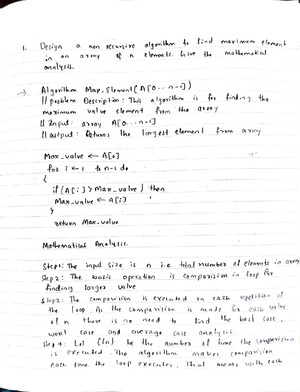 1. Design a non recursive algorithm to find maximum element
in an array of n elements. Give the mathematical
analysis.
→ Algorithm Max_Element (A[0...n-1])
// problem Description: This algorithm is for finding the
maximum value element from the array
// Input: array A[0...n-1]
// output: Returns the largest element from array
Max_value ← A[0]
for i ← 1 to n-1 do
{
if (A[i] > Max_value) then
Max_value ← A[i]
}
return Max_value
Mathematical Analysis.
Step1: The input size is n i.e total number of elements in array
Step 2: The basic operation is comparision in loop for
finding larger value
Step 3: The comparision is executed on each repetition of
the loop. As the comparision is made for each value
of n there is no need to find the best case,
worst case and average case analysis.
Step 4: Let C(n) be the number of time the comparision
is executed. The algorithm makes comparision
each time the loop executes. That means with each